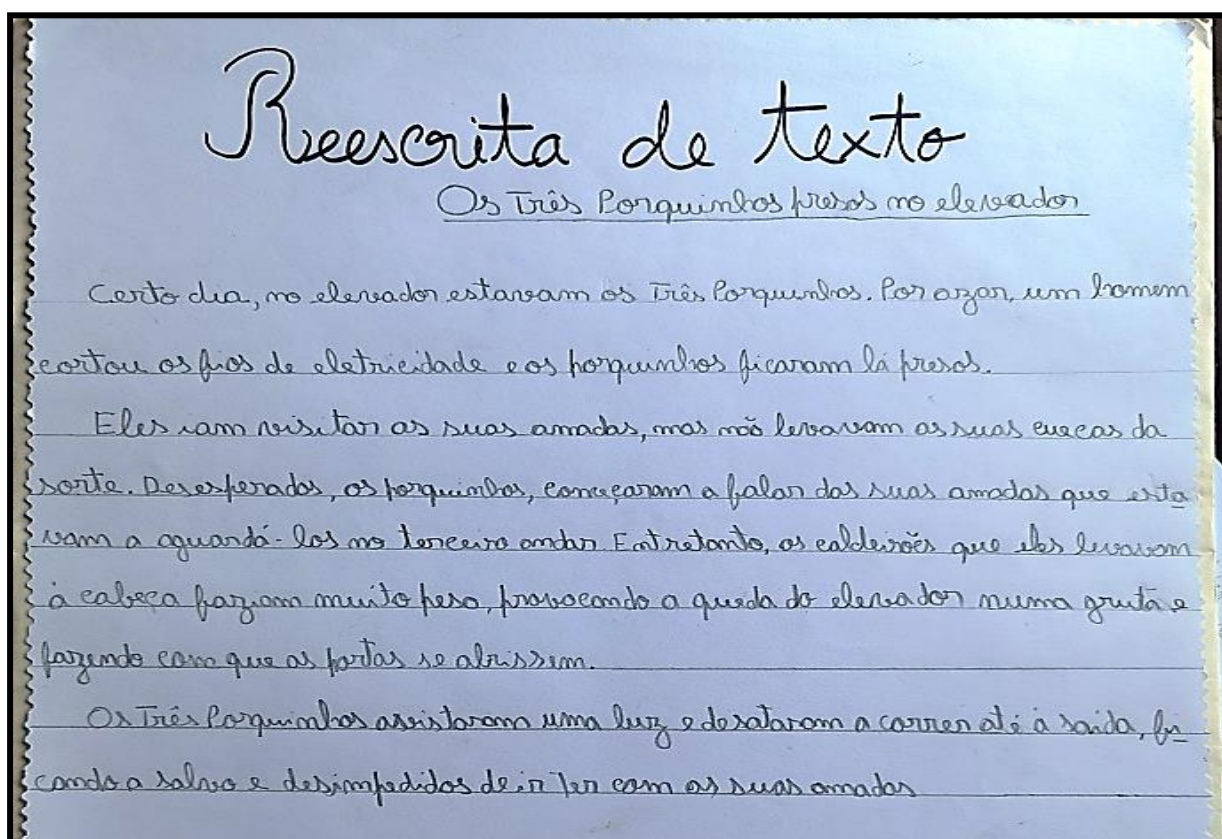 Reescrita de texto
Os Três Porquinhos presos no elevador
Certo dia, no elevador estavam os Três Porquinhos. Por azar, um homem
cortou os fios de eletricidade e os porquinhos ficaram lá presos.
Eles iam visitar as suas amadas, mas não levavam as suas cuecas da
sorte. Desesperados, os porquinhos, começaram a falar das suas amadas que esta
vam a aguardá-los no terceiro andar. Entretanto, os caldeirões que eles levavam
à cabeça faziam muito peso, provocando a queda do elevador numa gruta e
fazendo com que as portas se abrissem.
Os Três Porquinhos avistaram uma luz e desataram a correr até à saída, fi
cando a salvo e desimpedidos de ir ter com as suas amadas